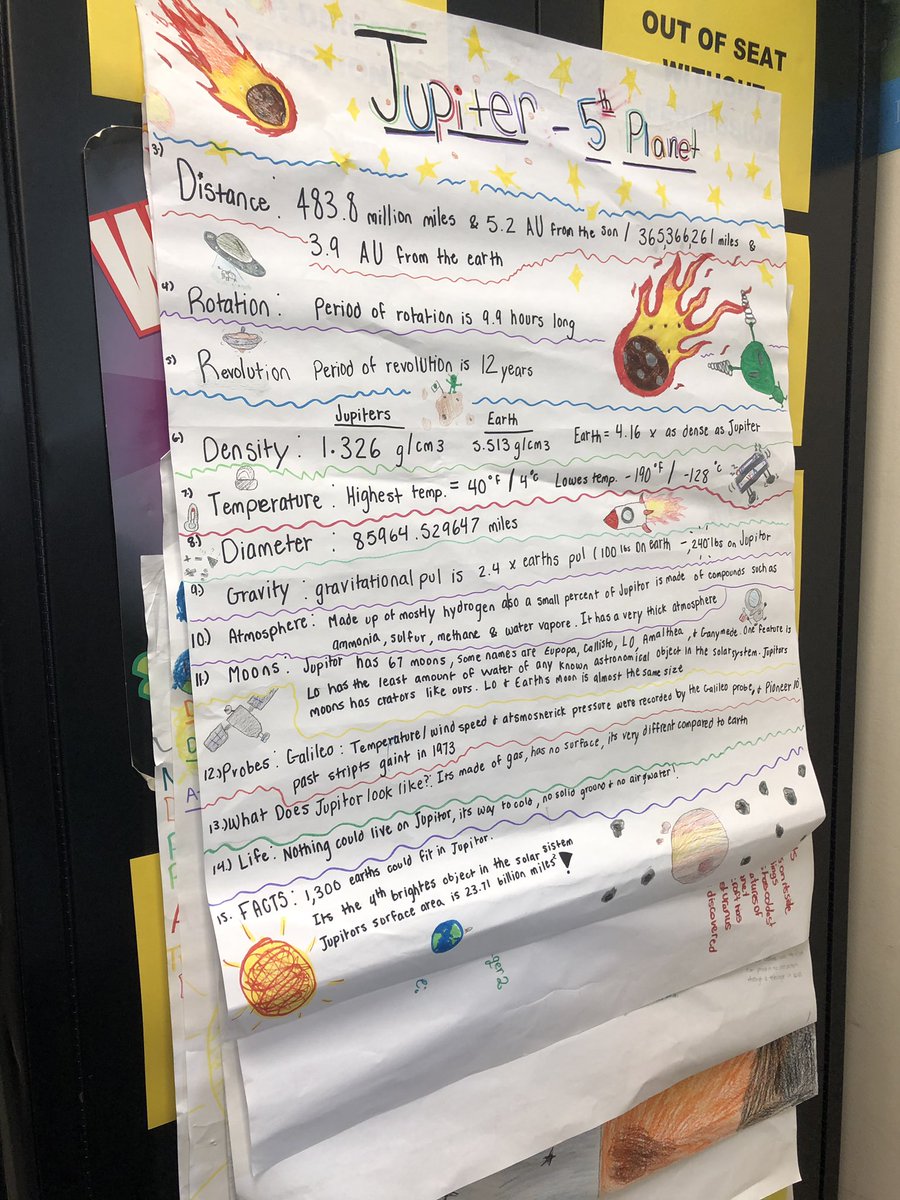 OUT OF SEAT
WITHOUT
Jupiter - 5th Planet
3) Distance: 483.8 million miles & 5.2 AU from the son / 365,366,261 miles &
3.9 AU from the earth
4) Rotation: Period of rotation is 9.9 hours long
5) Revolution Period of revolution is 12 years
Jupiters Earth
6) Density: 1.326 g/cm3 5.513 g/cm3 Earth = 4.16 x as dense as Jupiter
7) Temperature: Highest temp. = 40°F / 4°c Lowes temp. -190°F / -128°c
8.) Diameter: 85964.529647 miles
9.) Gravity: gravitational pul is 2.4 x earths pul (100 lbs on Earth -, 240 lbs on Jupitor
10.) Atmosphere: Made up of mostly hydrogen also a small percent of Jupitor is made of compounds such as
ammonia, sulfur, methane & water vapore. It has a very thick atmosphere
11.) Moons: Jupitor has 67 moons, some names are Europa, Callisto, LO, Amalthea, & Ganymade. One feature is
Lo has the least amount of water of any known astronomical object in the solar system. Jupitors
moons has crators like ours. Lo & Earths moon is almost the same size
12.) Probes: Galileo: Temperature/wind speed & atsmosnerick pressure were recorded by the Galileo probe, & Pioneer 10
past stripts gaint in 1973
13.) What Does Jupitor look like?: Its made of gas, has no surface, its very diffrent compared to earth
14.) Life: Nothing could live on Jupitor, its way to cold, no solid ground & no air & water!
15. FACTS: 1,300 earths could fit in Jupitor.
Its the 4th brightes object in the solar sistem
Jupitors surface area is 23.71 billion miles²!
ger 2
discovered